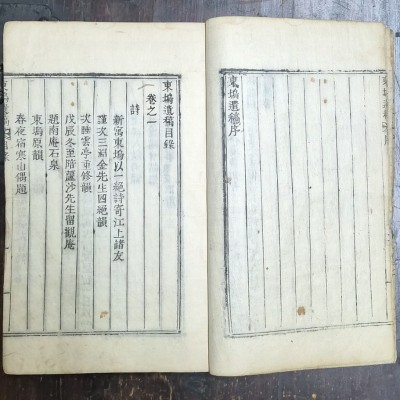 東塢遺稿序
東塢遺稿目錄
卷之一
詩
新寓東塢以一絕詩寄江上諸友
謹次三湖金先生四絕韻
次睡雲亭重修韻
戊辰冬至陪蘆沙先生留觀庵
題南庵石泉
東塢原韻
春夜宿寒山偶題